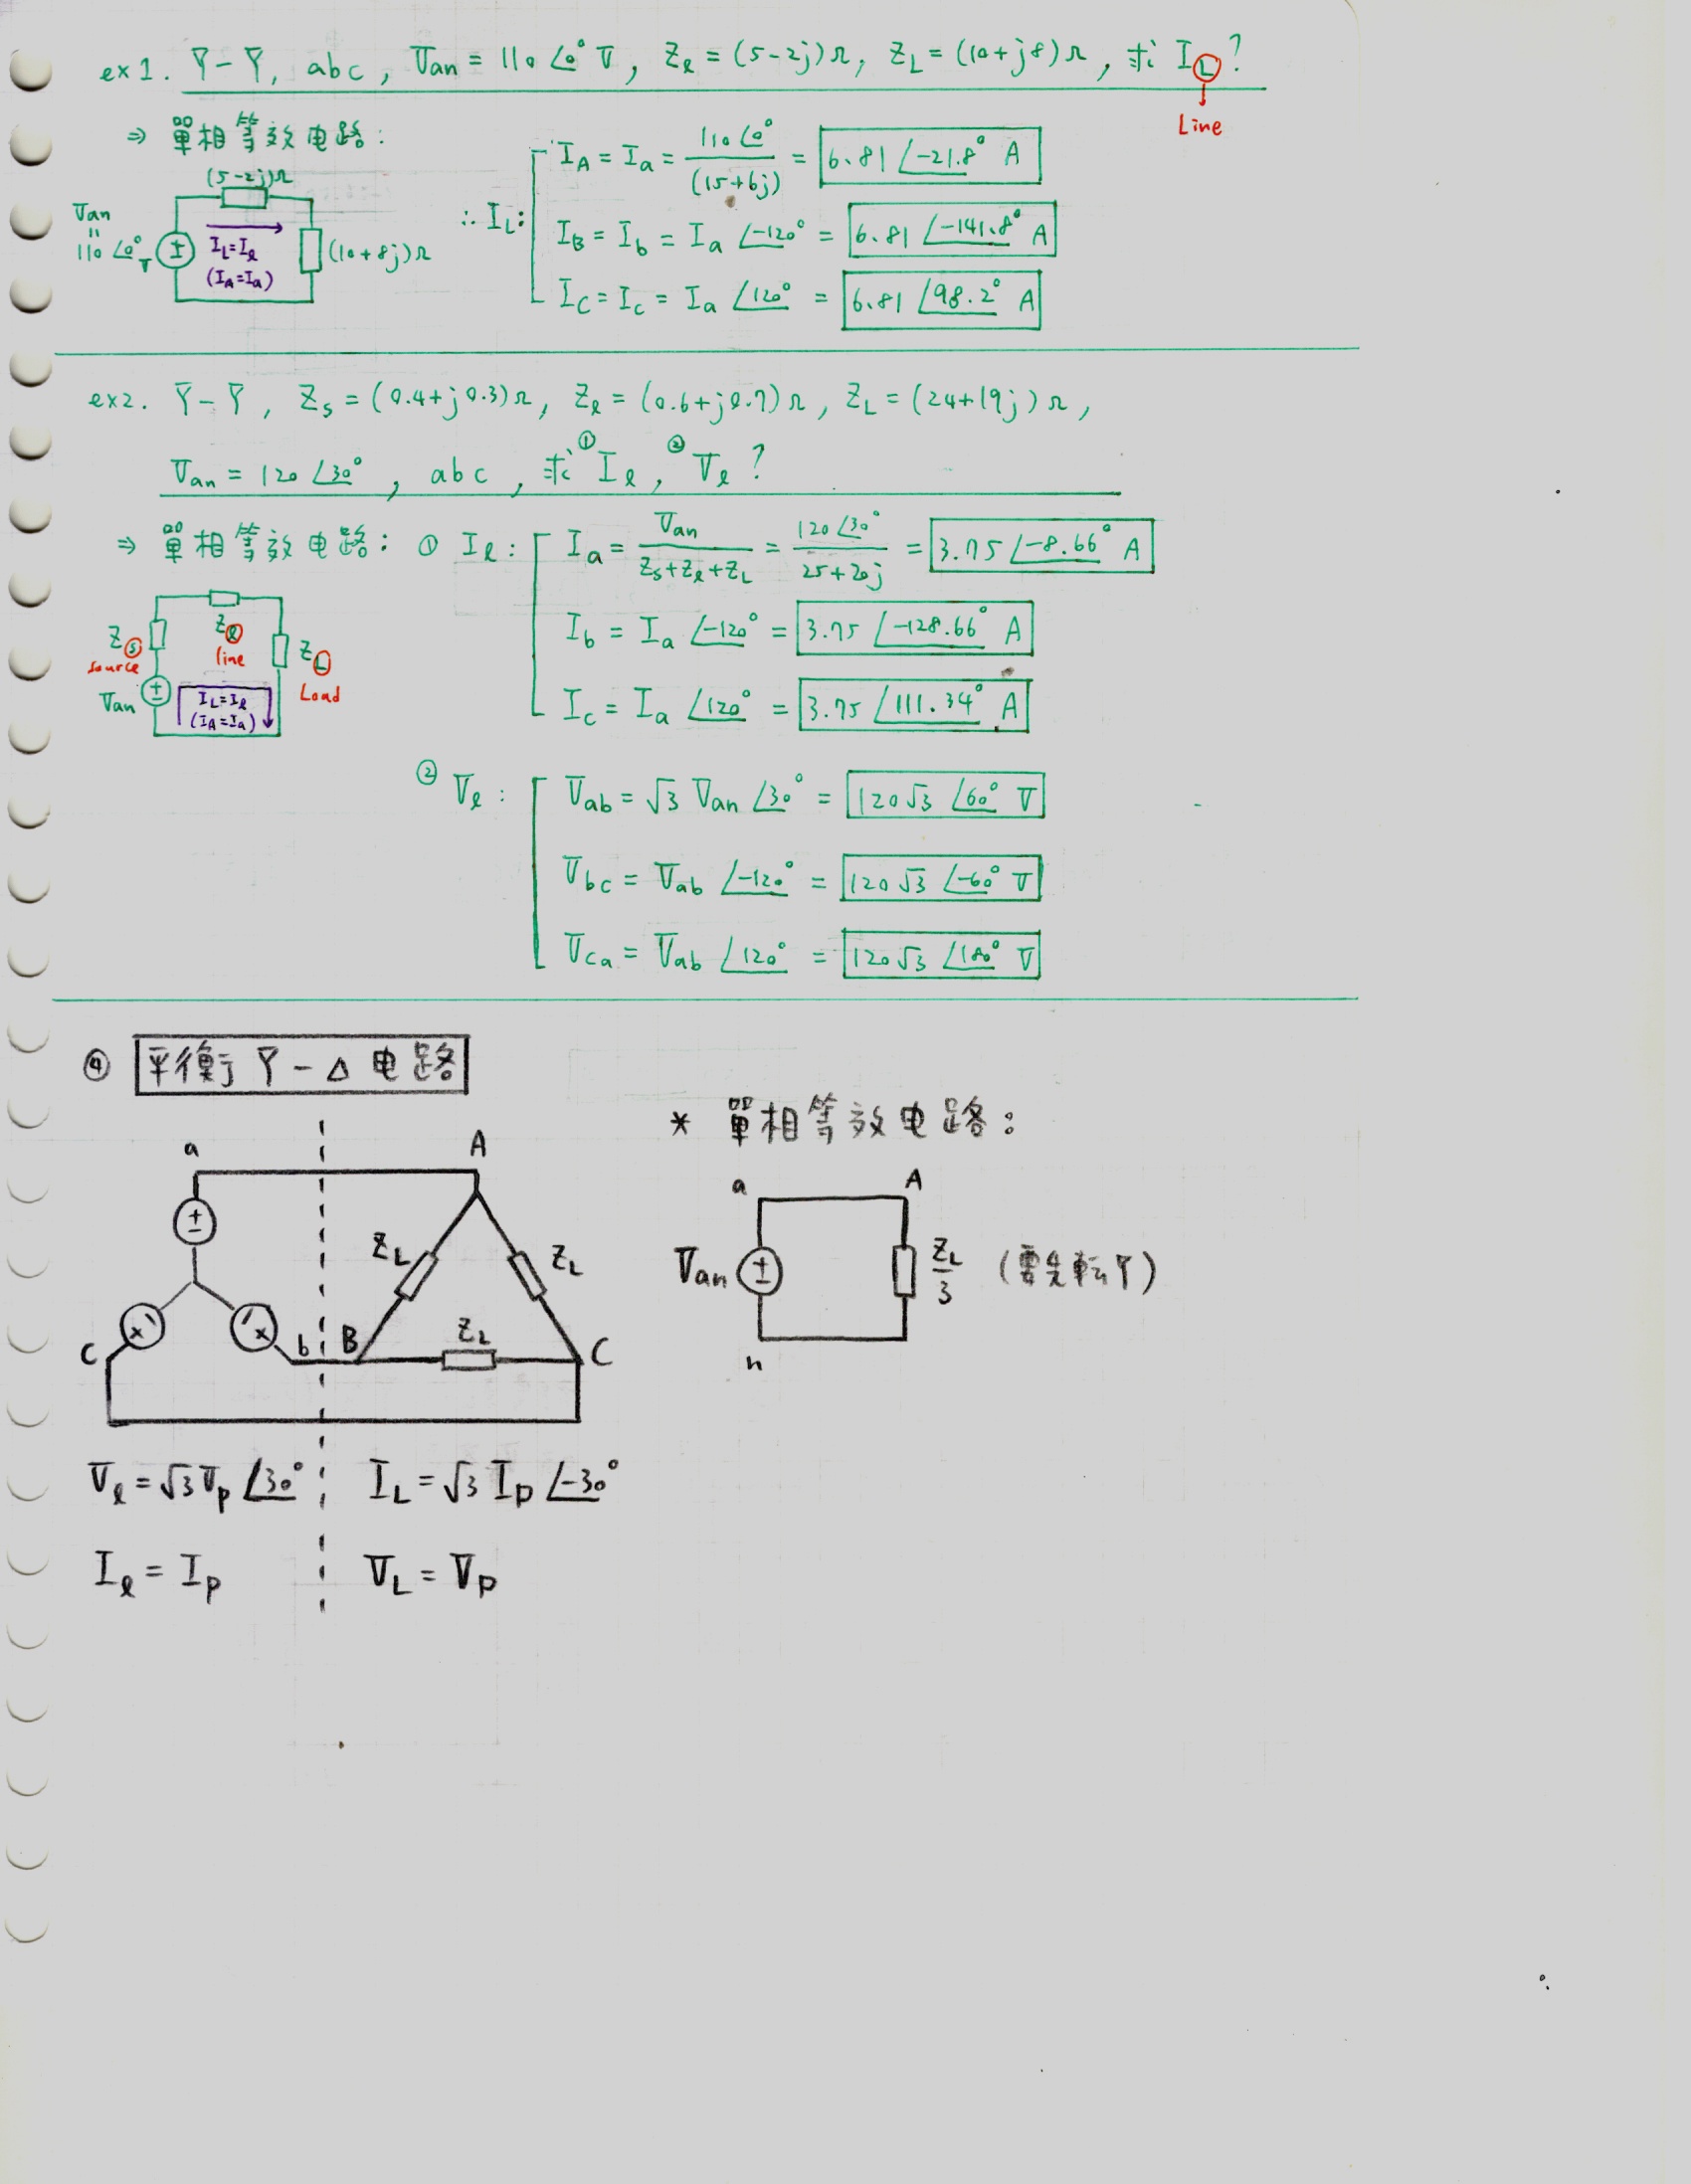 ex 1. Y-Y, abc, Van = 110∠0° V, Zℓ = (5-2j)Ω, ZL = (10+j8)Ω, 求 IL?
Line
⇒ 單相等效电路:
(5-2j)Ω
Van = 110∠0° V
IL=Iℓ
(IA=Ia)
(10+8j)Ω
∴ IL:
IA = Ia = 110∠0° / (15+6j) = 6.81∠-21.8° A
IB = Ib = Ia∠-120° = 6.81∠-141.8° A
IC = Ic = Ia∠120° = 6.81∠98.2° A
ex2. Y-Y, Zs = (0.4+j0.3)Ω, Zℓ = (0.6+j0.7)Ω, ZL = (24+19j)Ω,
Van = 120∠30°, abc, 求 ① Iℓ, ② Vℓ?
⇒ 單相等效电路:
Zs
source
Zℓ
line
ZL
Load
Van
IL=Iℓ
(IA=Ia)
① Iℓ:
Ia = Van / (Zs+Zℓ+ZL) = 120∠30° / 25+20j = 3.75∠-8.66° A
Ib = Ia∠-120° = 3.75∠-128.66° A
Ic = Ia∠120° = 3.75∠111.34° A
② Vℓ:
Vab = √3 Van∠30° = 120√3∠60° V
Vbc = Vab∠-120° = 120√3∠-60° V
Vca = Vab∠120° = 120√3∠180° V
④ 平衡 Y-Δ 电路
a
A
ZL
ZL
c
b
B
ZL
C
Vℓ = √3 Vp∠30°
IL = √3 Ip∠-30°
Iℓ = Ip
VL = Vp
* 單相等效电路:
a
A
Van
ZL/3 (需先転Y)
n